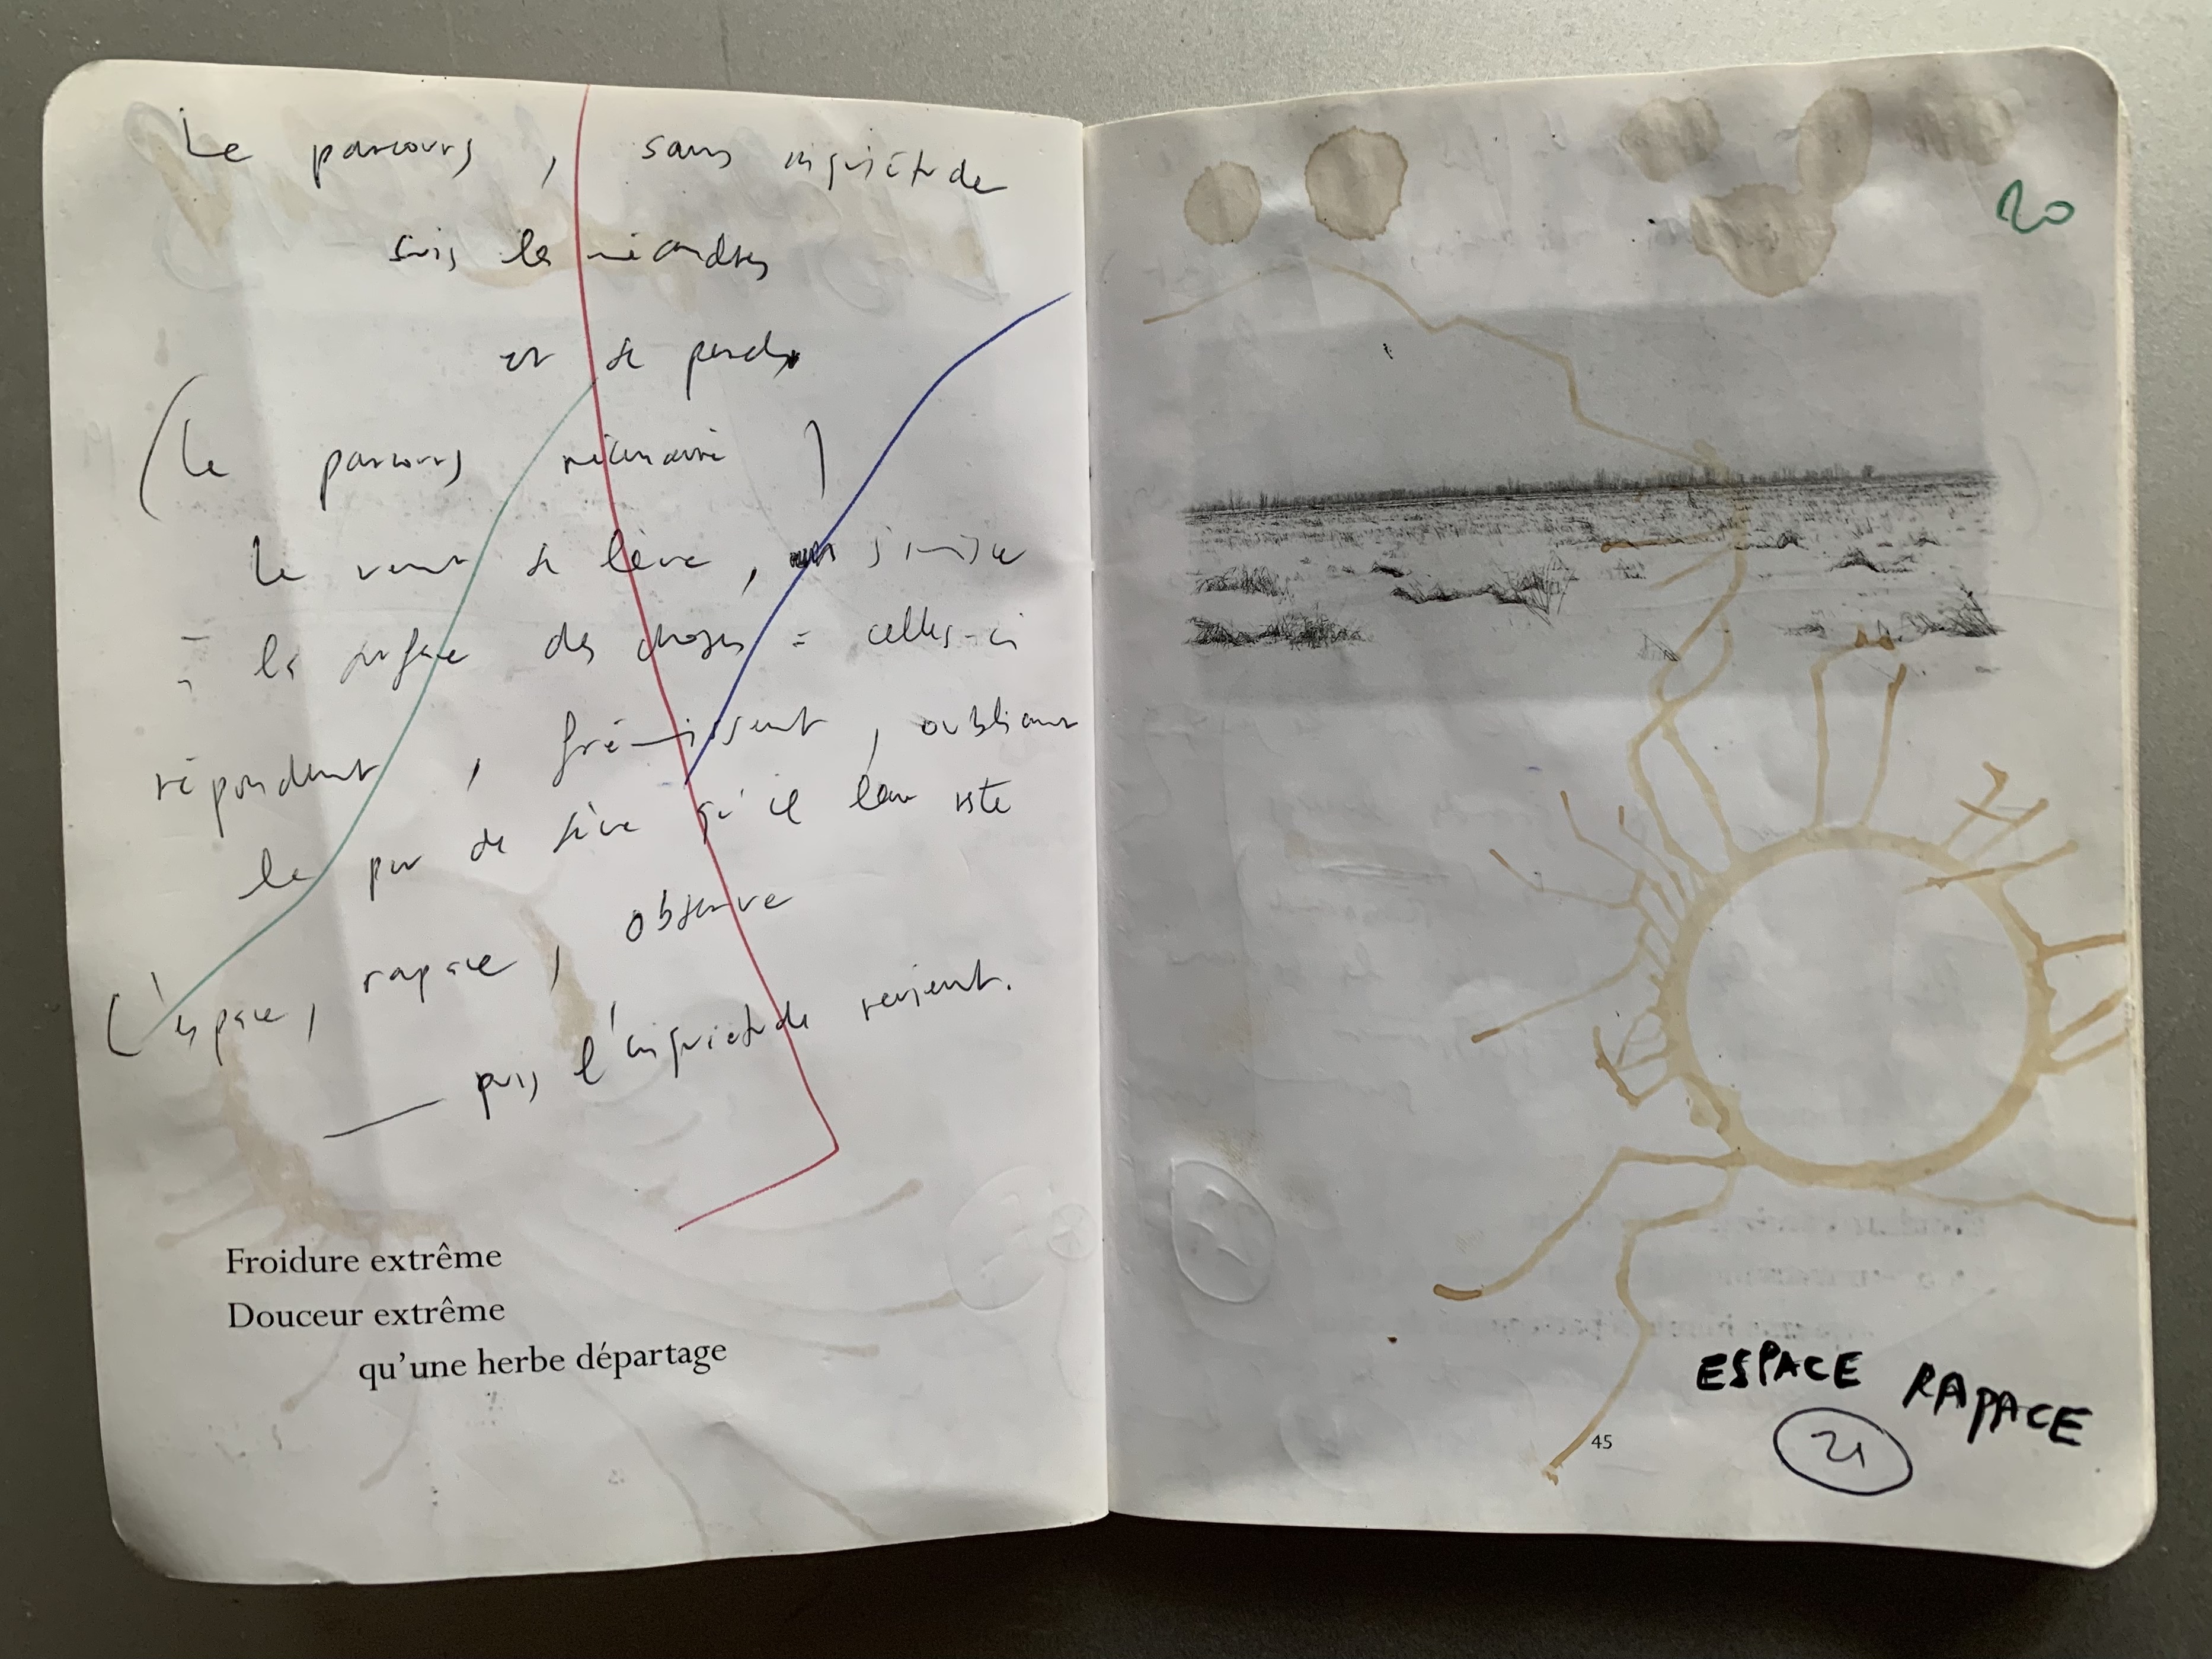 Le parcours, sans inquiétude
suis les méandres
et se perds
(Le parcours mémoire)
Le vent se lève, s'immisce
à la surface des choses : celles-ci
répondent, frémissent, oubliant
le peu de sève qu'il leur reste
L'espace, rapace, observe
— puis l'inquiétude revient.
Froidure extrême
Douceur extrême
qu'une herbe départage
20
ESPACE RAPACE
45
21